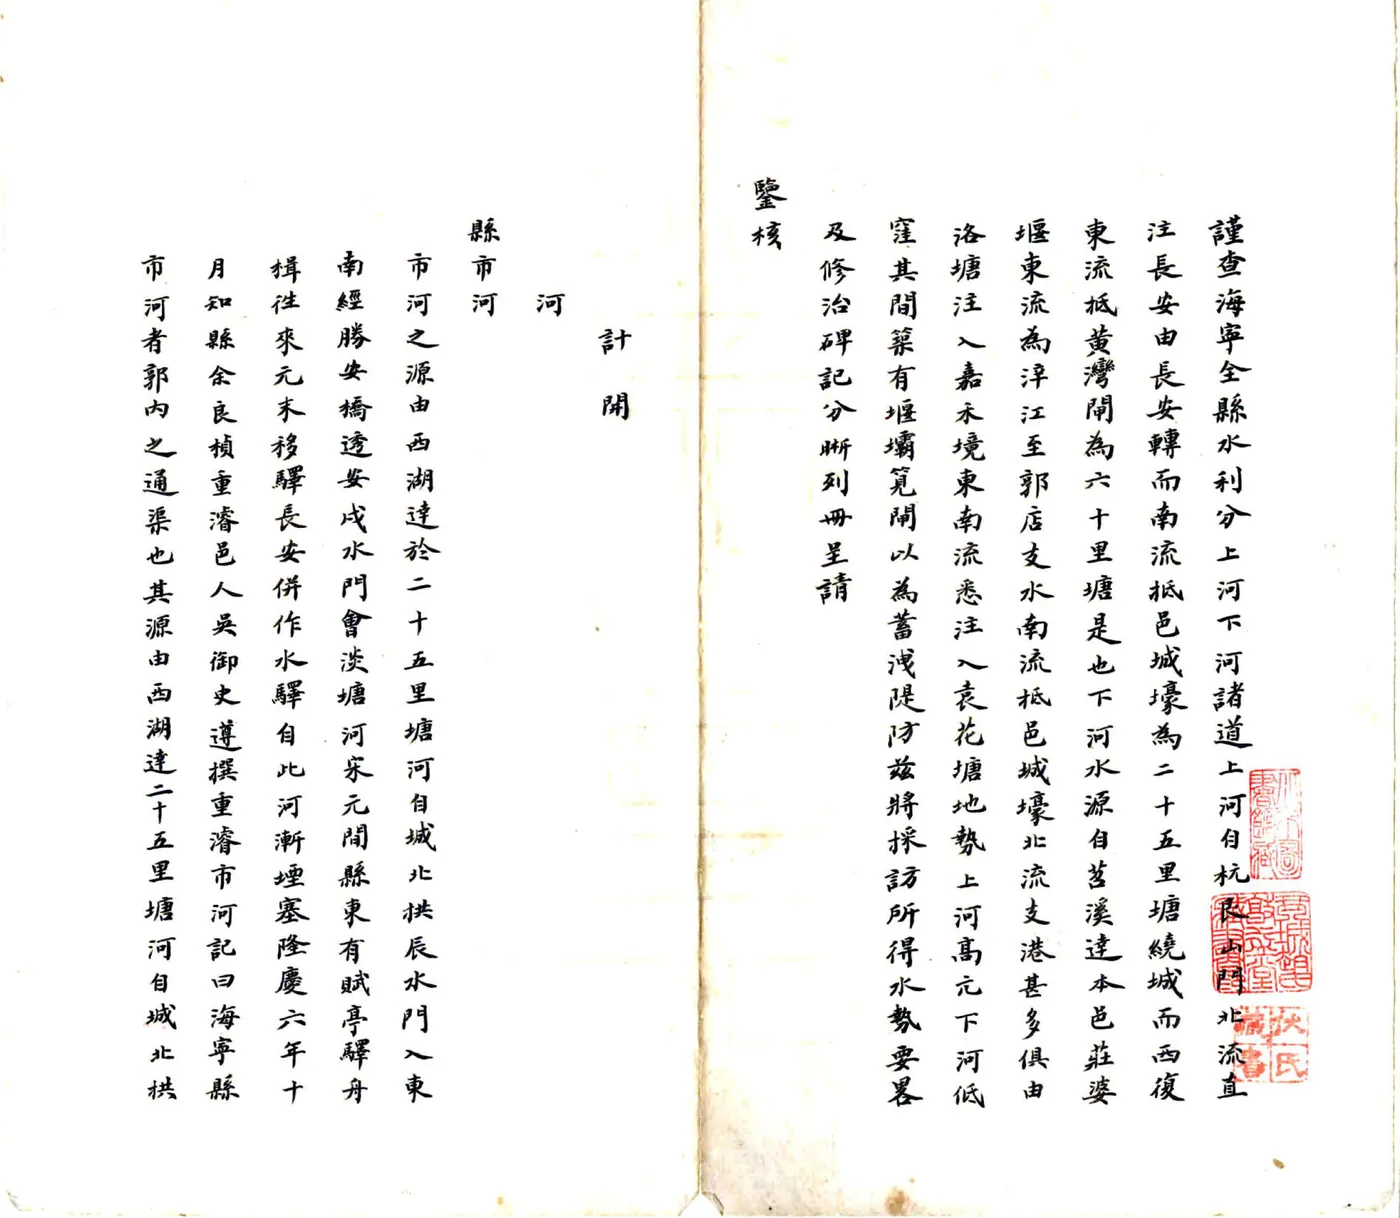 謹查海寧全縣水利分上河下河諸道上河自杭艮山門北流直
注長安由長安轉而南流抵邑城壕為二十五里塘繞城而西復
東流抵黃灣閘為六十里塘是也下河水源自苕溪達本邑莊婆
堰東流為淬江至郭店支水南流柢邑城壕北流支港甚多俱由
洛塘注入嘉禾境東南流悉注入袁花塘地勢上河高亢下河低
窪其間築有堰壩筧閘以為蓄洩隄防茲將採訪所得水勢要畧
及修治碑記分晰列冊呈請
鑒核
計開
河
縣市河
市河之源由西湖達於二十五里塘河自城北拱辰水門入東
南經勝安橋透安戌水門會淡塘河宋元間縣東有賦亭驛舟
楫徃來元末移驛長安併作水驛自此河漸堙塞隆慶六年十
月知縣余良楨重濬邑人吳御史遵撰重濬市河記曰海寧縣
市河者郭內之通渠也其源由西湖達二十五里塘河自城北拱
伏氏
藏書